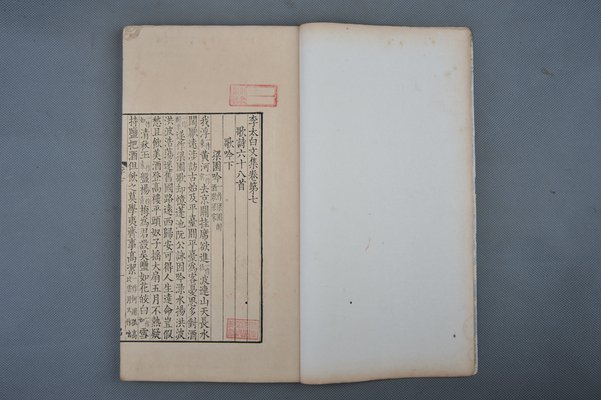 李太白文集卷第七
歌詩六十八首
歌吟下
梁園吟
我浮黃河去京闕挂席欲進波連山天長水
闊厭遠涉訪古始及平臺間平臺爲客憂思多對酒
遂作梁園歌却憶蓬池阮公詠因吟淥水揚洪波
洪波浩蕩迷舊國路遠西歸安可得人生達命豈假
愁且飲美酒登高樓平頭奴子搖大扇五月不熱疑
清秋玉盤楊梅爲君設吳鹽如花皎白雪
持鹽把酒但飲之莫學夷齊事高潔